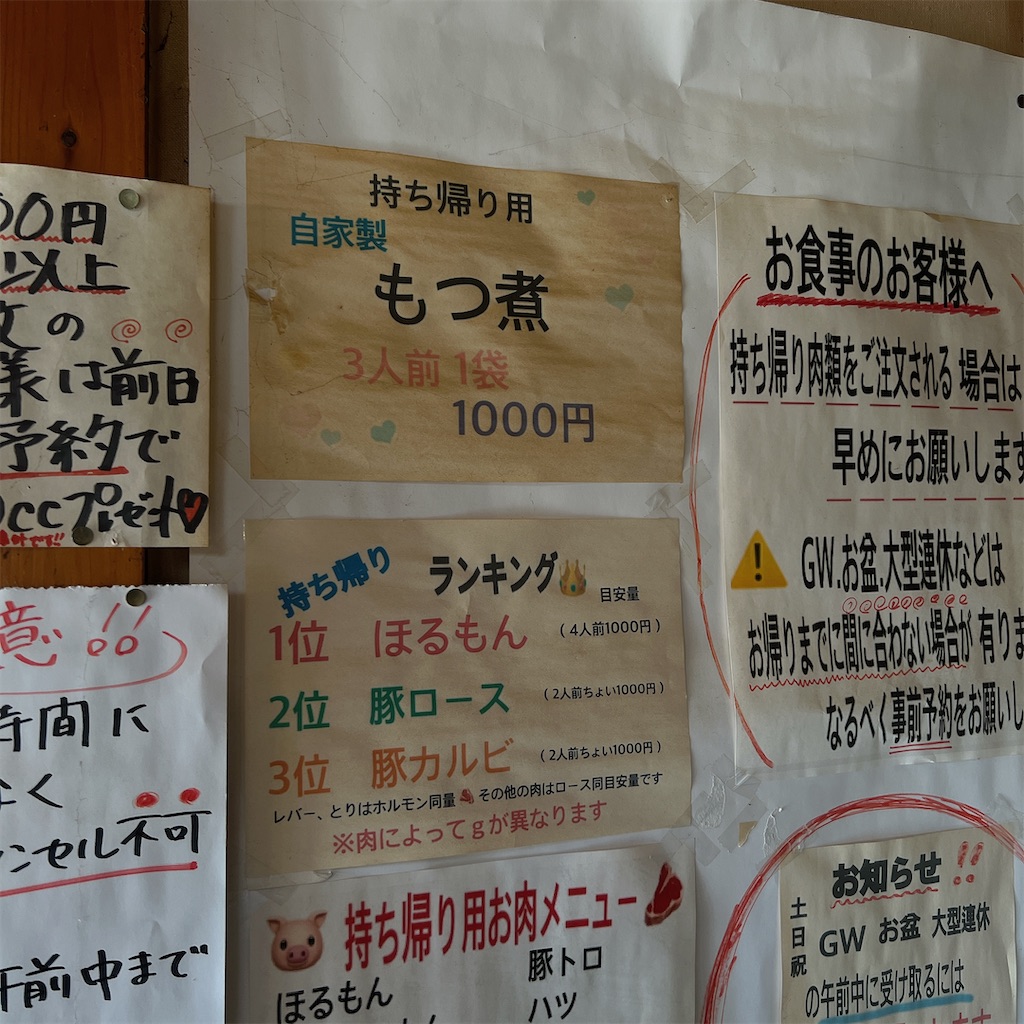 00円
以上
の
様は前日
予約で
ccプレゼント
持ち帰り用
自家製
もつ煮
3人前 1袋
1000円
お食事のお客様へ
持ち帰り肉類をご注文される 場合は
早めにお願いします
GW.お盆.大型連休などは
お帰りまでに間に合わない場合が 有りま
なるべく事前予約をお願いし
持ち帰り
ランキング
目安量
1位 ほるもん (4人前1000円)
2位 豚ロース (2人前ちょい1000円)
3位 豚カルビ (2人前ちょい1000円)
レバー、とりはホルモン同量 その他の肉はロース同目安量です
※肉によってgが異なります
意!!
時間に
なく
ンセル不可
午前中まで
持ち帰り用お肉メニュー
ほるもん
豚トロ
ハツ
お知らせ!!
土日祝
GW お盆 大型連休
の午前中に受け取るには